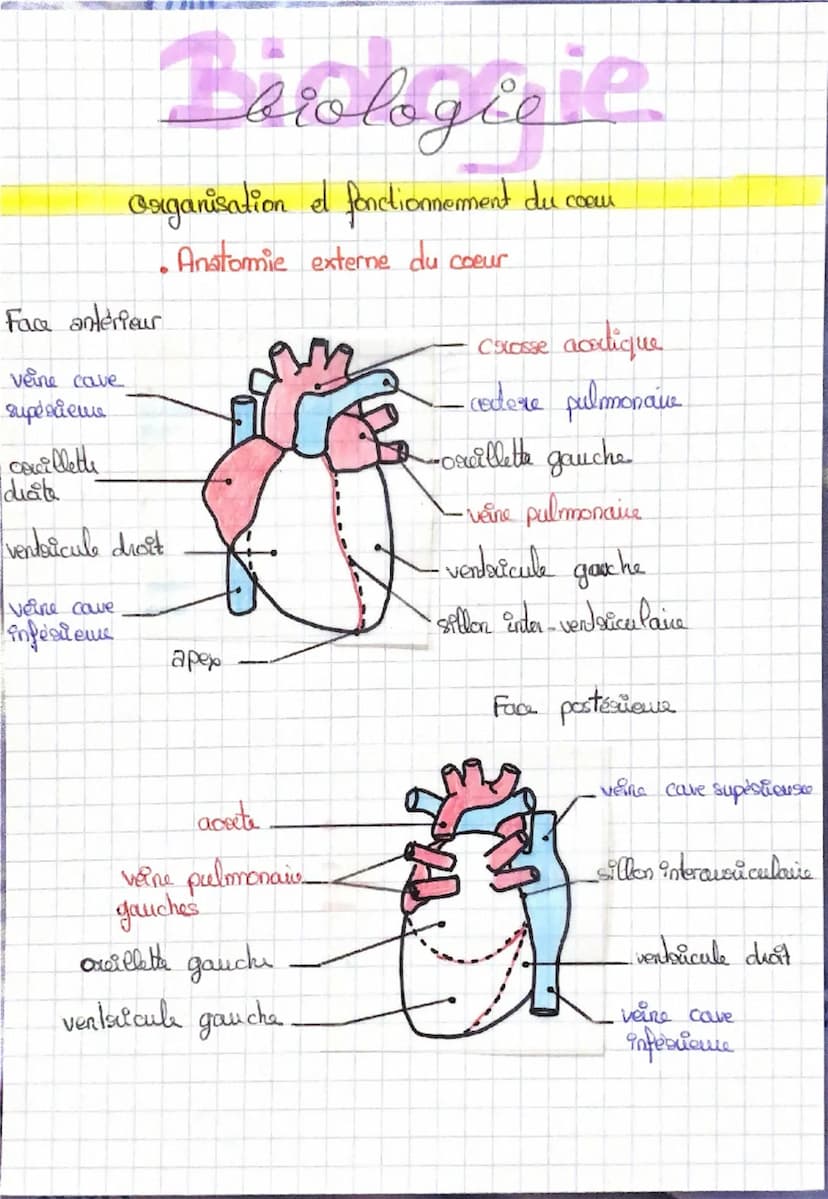 Biologie
biologie
Organisation et fonctionnement du coeur
. Anatomie externe du coeur
Face antérieur
crosse aortique
veine cave
supérieure
artere pulmonaire
oreillette
droite
oreillette gauche
veine pulmonaire
ventricule droit
ventricule gauche
veine cave
inférieure
sillon inter-ventriculaire
apex
Face postérieure
veine cave supérieure
aorte
veine pulmonaire
gauches
sillon interauriculaire
oreillette gauche
ventricule droit
ventricule gauche
veine cave
inférieure